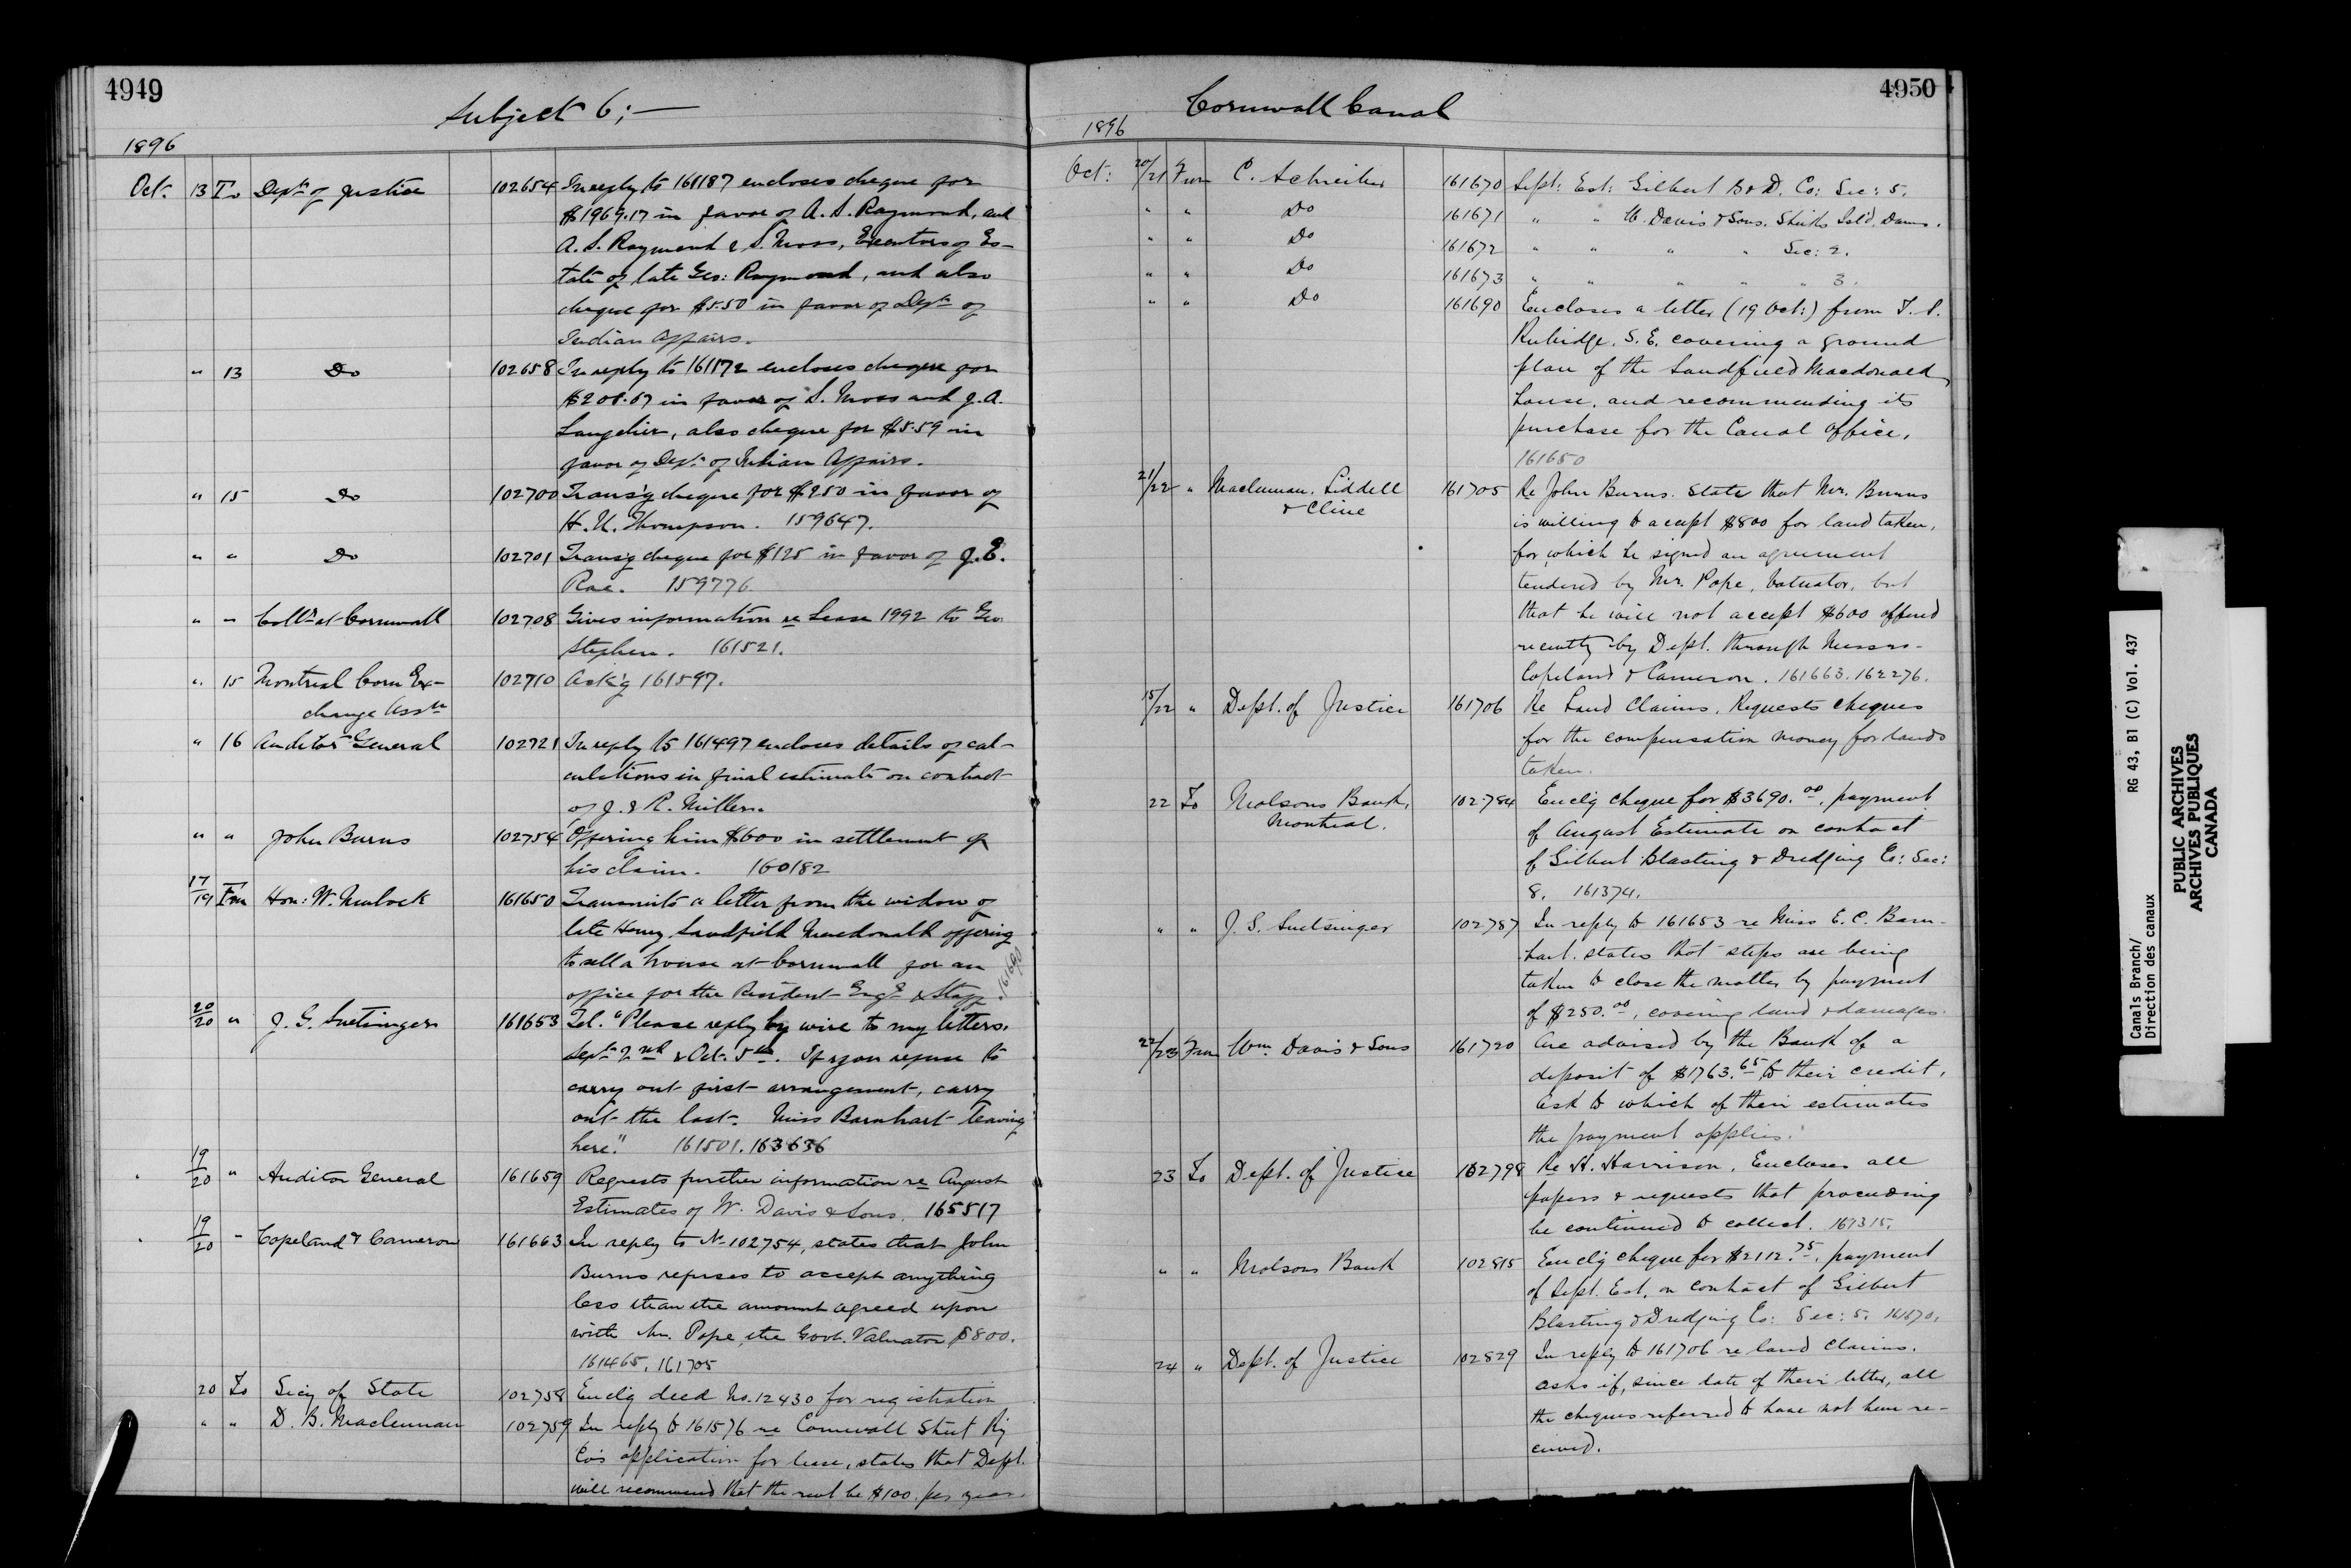 4949
Subject 6;—
1896
Oct. 13 To Dept. of Justice 102654 In reply to 161187 encloses cheque for
$1969.17 in favor of A. S. Raymond, and
A. S. Raymond & S. Moss, Executors of Es-
tate of late Geo: Raymond, and also
cheque for $5.50 in favor of Dept. of
Indian Affairs.
" 13 Do 102658 In reply to 161172 encloses cheque for
$208.67 in favor of S. Moss and J. A.
Langelier, also cheque for $5.59 in
favor of Dept. of Indian Affairs.
" 15 Do 102700 Trans'g cheque for $250 in favor of
H. U. Thompson. 159647.
" " Do 102701 Trans'g cheque for $125 in favor of J. E.
Rae. 159776
" " Collr. at Cornwall 102708 Gives information re Lease 1992 to Geo
Stephen. 161521.
" 15 Montreal Corn Ex- 102710 Ack'g 161597.
change Assn
" 16 Auditor General 102721 In reply to 161497 encloses details of cal-
culations in final estimate on contract
of J. & R. Miller.
" " John Burns 102754 Offering him $600 in settlement of
his claim. 160182
17/19 Frm Hon: W. Mulock 161650 Transmits a letter from the widow of
late Henry Sandfield Macdonald offering
to sell a house at Cornwall for an
office for the Resident Engr. & Staff
161690
20/20 " J. G. Snetsinger 161653 Tel. "Please reply by wire to my letters,
Sept. 2nd & Oct. 5th. If you refuse to
carry out first arrangement, carry
out the last. Miss Barnhart leaving
here." 161501. 163636
19/20 " Auditor General 161659 Requests further information re August
Estimates of W. Davis & Sons. 165517
19/20 " Copeland & Cameron 161663 In reply to No 102754, states that John
Burns refuses to accept anything
less than the amount agreed upon
with Mr. Pope, the Govt. Valuator $800.
161465, 161705
20 To Secy of State 102758 Enclg deed No. 12430 for registration
" " D. B. Maclennan 102759 In reply to 161576 re Cornwall Street Ry
Co's application for lease, states that Dept.
will recommend that the rent be $100. per year.
4950
Cornwall Canal
1896
Oct: 20/21 From C. Schreiber 161670 Sept: Est: Gilbert B & D. Co: Sec: 5.
" " Do 161671 " " W. Davis & Sons. Sheiks Isl'd Dams.
" " Do 161672 " " " " Sec: 2.
" " Do 161673 " " " " " 3.
" " Do 161690 Encloses a letter (19 Oct:) from T. S.
Rubidge, S. E. covering a ground
plan of the Sandfield Macdonald
house, and recommending its
purchase for the Canal Office.
161650
21/22 " Maclennan, Liddell 161705 Re John Burns. State that Mr. Burns
& Cline
is willing to accept $800 for land taken,
for which he signed an agreement
tendered by Mr. Pope, Valuator, but
that he will not accept $600 offered
recently by Dept. through Messrs.
Copeland & Cameron. 161663. 162276.
15/22 " Dept. of Justice 161706 Re Land Claims. Requests cheques
for the compensation money for lands
taken.
22 To Molsons Bank, 102784 Enclg cheque for $3690.00, payment
Montreal.
of August Estimate on contract
of Gilbert Blasting & Dredging Co: Sec:
8. 161374.
" " J. G. Snetsinger 102787 In reply to 161653 re Miss E. C. Barn-
hart. states that steps are being
taken to close the matter by payment
of $250.00, covering land & damages.
22/23 From Wm. Davis & Sons 161720 Are advised by the Bank of a
deposit of $1763.65 to their credit,
Ask to which of their estimates
the payment applies.
23 To Dept. of Justice 102798 Re H. Harrison. Encloses all
papers & requests that proceeding
be continued to collect. 167315.
" " Molsons Bank 102815 Enclg cheque for $2112.75, payment
of Sept. Est. on contract of Gilbert
Blasting & Dredging Co: Sec: 5. 161670.
24 " Dept. of Justice 102829 In reply to 161706 re land claims.
asks if, since date of their letter, all
the cheques referred to have not been re-
ceived.
Canals Branch/ RG 43, B1 (C) Vol. 437
Direction des canaux
PUBLIC ARCHIVES
ARCHIVES PUBLIQUES
CANADA